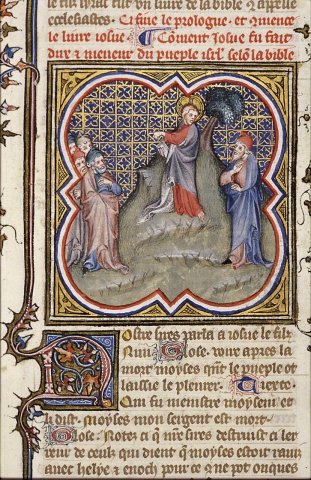 de la bible
ecclesiastes Ci fine le prologue. et 9mence
le liure iosue. Cōment Josue fu fait
duc et meneur du pueple isrl selō la bible
Nostre sires parla a iosue le filz
Nun Glose. voire apres la
mort moyses q̄nt le pueple ot
laissie le plourer. Texte.
Qui fu menistre moyseni et
li dist. moyses mon sergent est mort.
Glose. Notez ci q̄ nr̄e sires destruist ci ler
reur de ceulx qui dient q̄ moyses estoit rauiz
auec helye et enoch pour ce q̄ ne pot onques